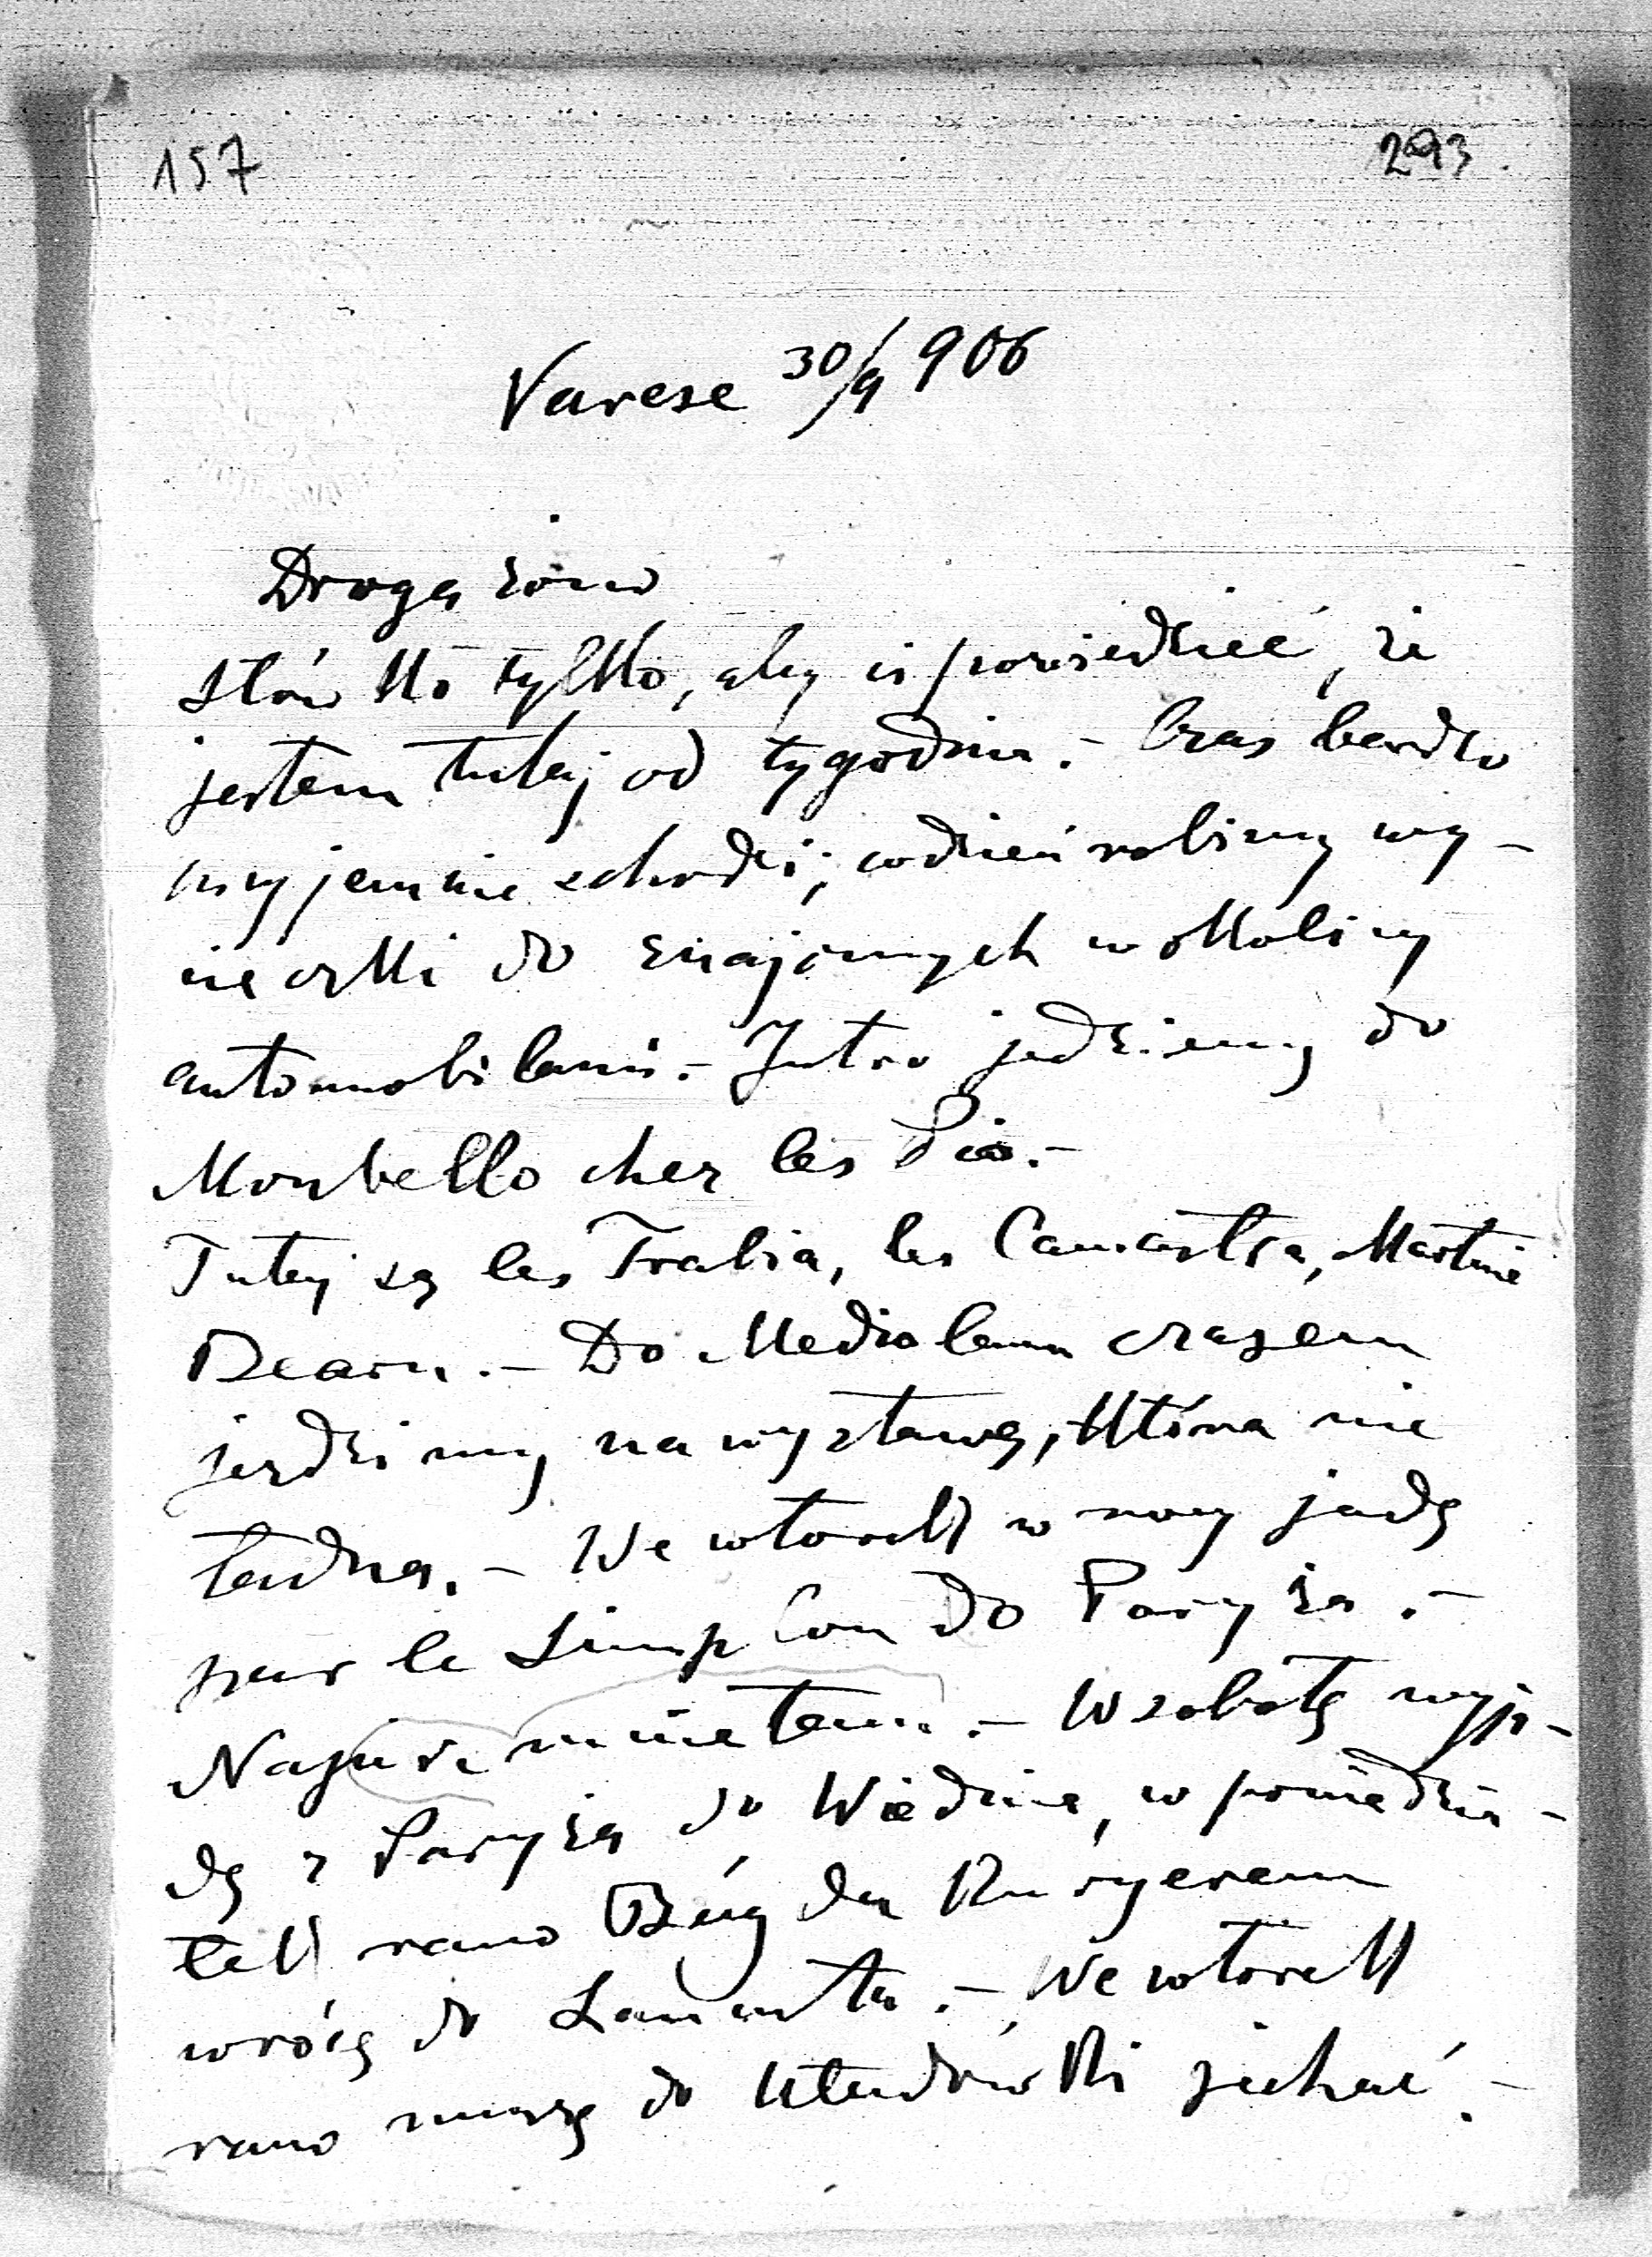 157
293.
Varese 30/9 906
Droga żono
słówko tylko, aby ci powiedzieć, że
jestem tutaj od tygodnia. – Czas bardzo
przyjemnie schodzi; codzień robimy wy-
cieczki do znajomych w okolicy
automobilami. – Jutro jedziemy do
Monbello chez les Pio. –
Tutaj są les Trabia, les Camastra, Martine
Bearn. – Do Mediolanu czasem
jeździmy na wystawę, która nie
ładna. – We wtorek w nocy jadę
par le Simplon do Paryża. –
W sobotę wyje-
dę z Paryża do Wiednia, w poniedzia-
łek rano Kuryerem
wrócę do Łańcuta. – We wtorek
rano muszę do Kładówki jechać. –